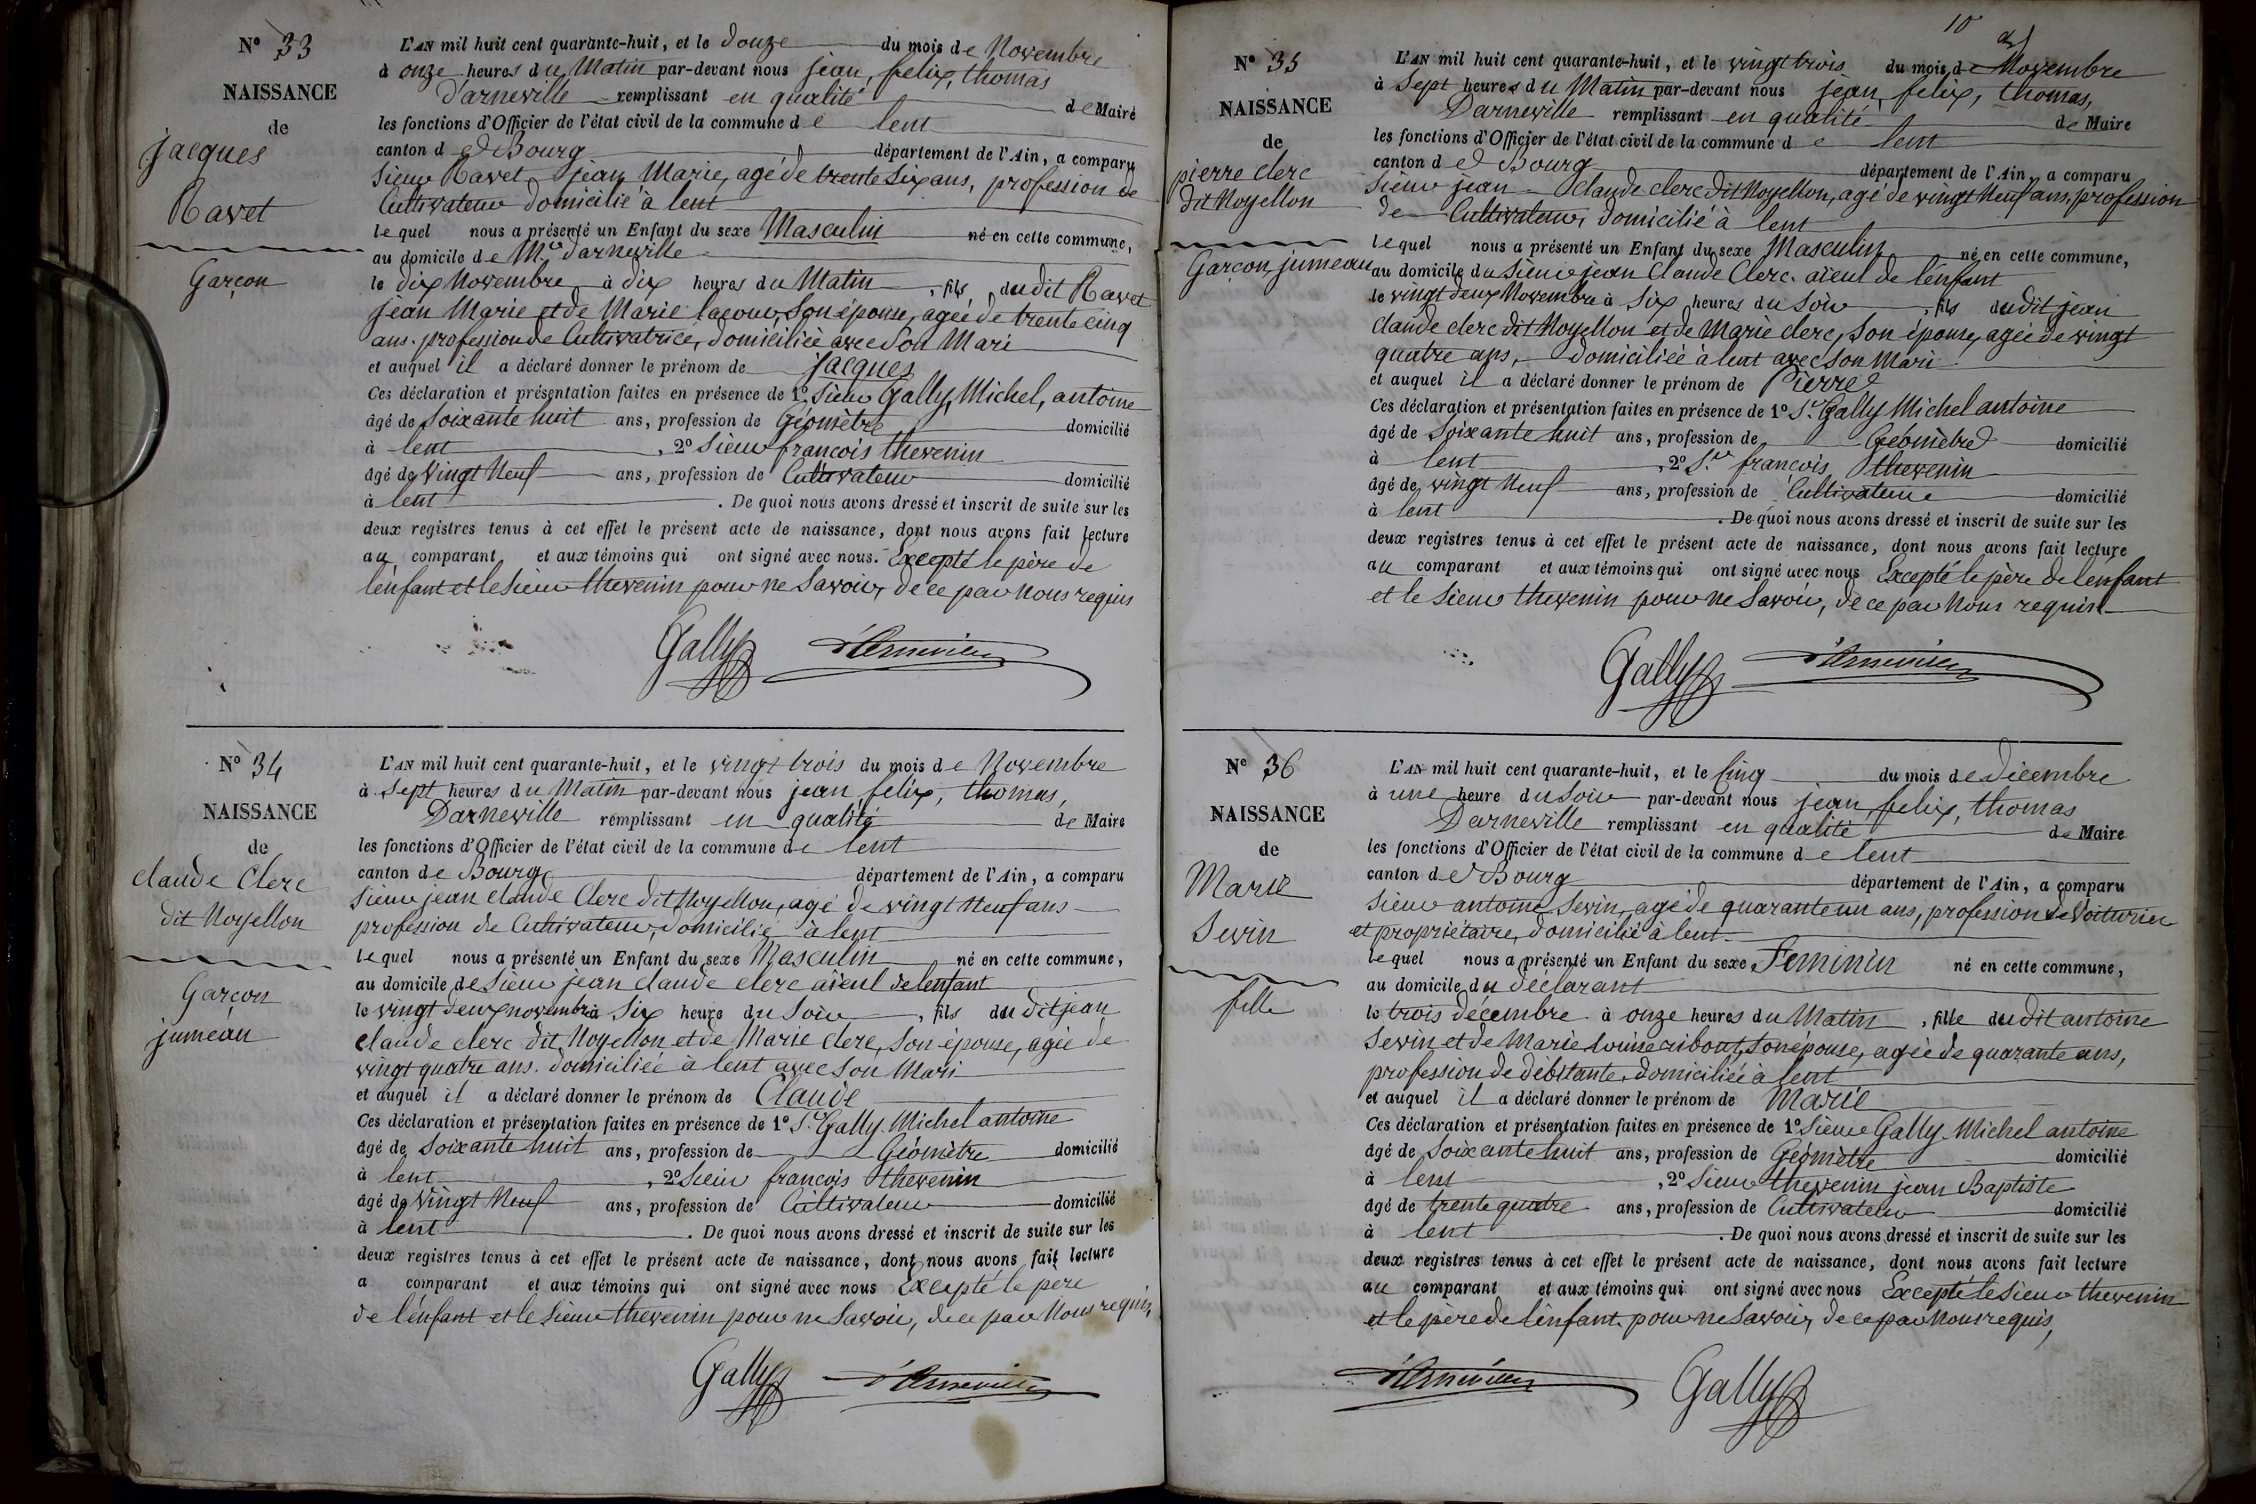 N° 33
NAISSANCE
de
jacques
Ravet
Garçon
L'AN mil huit cent quarante-huit, et le douze du mois de Novembre
à onze heures du Matin par-devant nous jean, felix, thomas
D'arneville remplissant en qualité de Maire
les fonctions d'Officier de l'état civil de la commune de lent
canton de Bourg département de l'Ain, a comparu
Sieur Ravet jean Marie, agé de trente Six ans, profession de
Cultivateur domicilié à lent
lequel nous a présenté un Enfant du sexe Masculin né en cette commune,
au domicile de Mr Darneville
le dix Novembre à dix heures du Matin, fils dudit Ravet
jean Marie et de Marie lacour, Son épouse, agée de trente cinq
ans. profession de Cultivatrice, domiciliée avec Son Mari
et auquel il a déclaré donner le prénom de jacques
Ces déclaration et présentation faites en présence de 1° Sieur Gally, Michel, antoine
âgé de Soixante huit ans, profession de Géomètre domicilié
à lent, 2° Sieur françois thevenin
âgé de Vingt Neuf ans, profession de Cultivateur domicilié
à lent. De quoi nous avons dressé et inscrit de suite sur les
deux registres tenus à cet effet le présent acte de naissance, dont nous avons fait lecture
au comparant, et aux témoins qui ont signé avec nous. Excepté le père de
l'enfant et le Sieur thevenin pour ne Savoir, de ce par Nous requis
Gally D'Arneville
N° 34
NAISSANCE
de
claude Clerc
dit Noyellon
Garçon
jumeau
L'AN mil huit cent quarante-huit, et le vingt trois du mois de Novembre
à Sept heures du Matin par-devant nous jean felix, thomas,
Darneville remplissant en qualité de Maire
les fonctions d'Officier de l'état civil de la commune de lent
canton de Bourg département de l'Ain, a comparu
Sieur jean claude Clerc dit Noyellon, agé de vingt Neuf ans
profession de Cultivateur, domicilié à lent
lequel nous a présenté un Enfant du sexe Masculin né en cette commune,
au domicile de Sieur jean claude clerc aïeul de lenfant
le vingt deux novembre à Six heure du Soir, fils du dit jean
claude clerc dit Noyellon et de Marie clerc, Son épouse, agée de
vingt quatre ans. domiciliée à lent avec Son Mari
et auquel il a déclaré donner le prénom de Claude
Ces déclaration et présentation faites en présence de 1° Sr Gally Michel antoine
âgé de Soixante huit ans, profession de Géomètre domicilié
à lent, 2° Sieur françois thevenin
âgé de Vingt Neuf ans, profession de Cultivateur domicilié
à lent. De quoi nous avons dressé et inscrit de suite sur les
deux registres tenus à cet effet le présent acte de naissance, dont nous avons fait lecture
a comparant et aux témoins qui ont signé avec nous Excepté le père
de l'enfant et le Sieur thevenin pour ne Savoir, de ce par Nous requis,
Gally D'Arneville
10
N° 35
NAISSANCE
de
pierre clerc
dit Noyellon
Garçon jumeau
L'AN mil huit cent quarante-huit, et le vingt trois du mois de Novembre
à Sept heures du Matin par-devant nous jean, felix, thomas,
Darneville remplissant en qualité de Maire
les fonctions d'Officier de l'état civil de la commune de lent
canton de Bourg département de l'Ain, a comparu
Sieur jean claude clerc dit Noyellon, agé de vingt Neuf ans, profession
de Cultivateur, domicilié à lent
lequel nous a présenté un Enfant du sexe Masculin né en cette commune,
au domicile du Sieur jean Claude Clerc. aïeul de lenfant
le vingt deux Novembre à Six heures du Soir, fils dudit jean
claude clerc dit Noyellon et de Marie clerc, Son épouse, agée de vingt
quatre ans, domiciliée à lent avec Son Mari
et auquel il a déclaré donner le prénom de Pierre
Ces déclaration et présentation faites en présence de 1° Sr Gally Michel antoine
âgé de Soixante huit ans, profession de Géomètre domicilié
à lent, 2° Sr françois thevenin
âgé de vingt Neuf ans, profession de Cultivateur domicilié
à lent. De quoi nous avons dressé et inscrit de suite sur les
deux registres tenus à cet effet le présent acte de naissance, dont nous avons fait lecture
au comparant et aux témoins qui ont signé avec nous Excepté le père de lenfant
et le Sieur thevenin pour ne Savoir, de ce par Nous requis
Gally D'Arneville
N° 36
NAISSANCE
de
Marie
Sevin
fille
L'AN mil huit cent quarante-huit, et le Cinq du mois de Décembre
à une heure du Soir par-devant nous jean, felix, thomas
Darneville remplissant en qualité de Maire
les fonctions d'Officier de l'état civil de la commune de lent
canton de Bourg département de l'Ain, a comparu
Sieur antoine Sevin, agé de quarante un ans, profession de Voiturier
et propriétaire, domicilié à lent
lequel nous a présenté un Enfant du sexe Feminin né en cette commune,
au domicile du déclarant
le trois décembre à onze heures du Matin, fille dudit antoine
Sevin et de Marie louise ribout, Son épouse, agée de quarante ans,
profession de débitante, domiciliée à lent
et auquel il a déclaré donner le prénom de Marie
Ces déclaration et présentation faites en présence de 1° Sieur Gally Michel antoine
âgé de Soixante huit ans, profession de Géomètre domicilié
à lent, 2° Sieur thevenin jean Baptiste
âgé de trente quatre ans, profession de Cultivateur domicilié
à lent. De quoi nous avons dressé et inscrit de suite sur les
deux registres tenus à cet effet le présent acte de naissance, dont nous avons fait lecture
au comparant et aux témoins qui ont signé avec nous Excepté le Sieur thevenin
et le père de l'enfant pour ne Savoir, de ce par Nous requis,
D'Arneville Gally